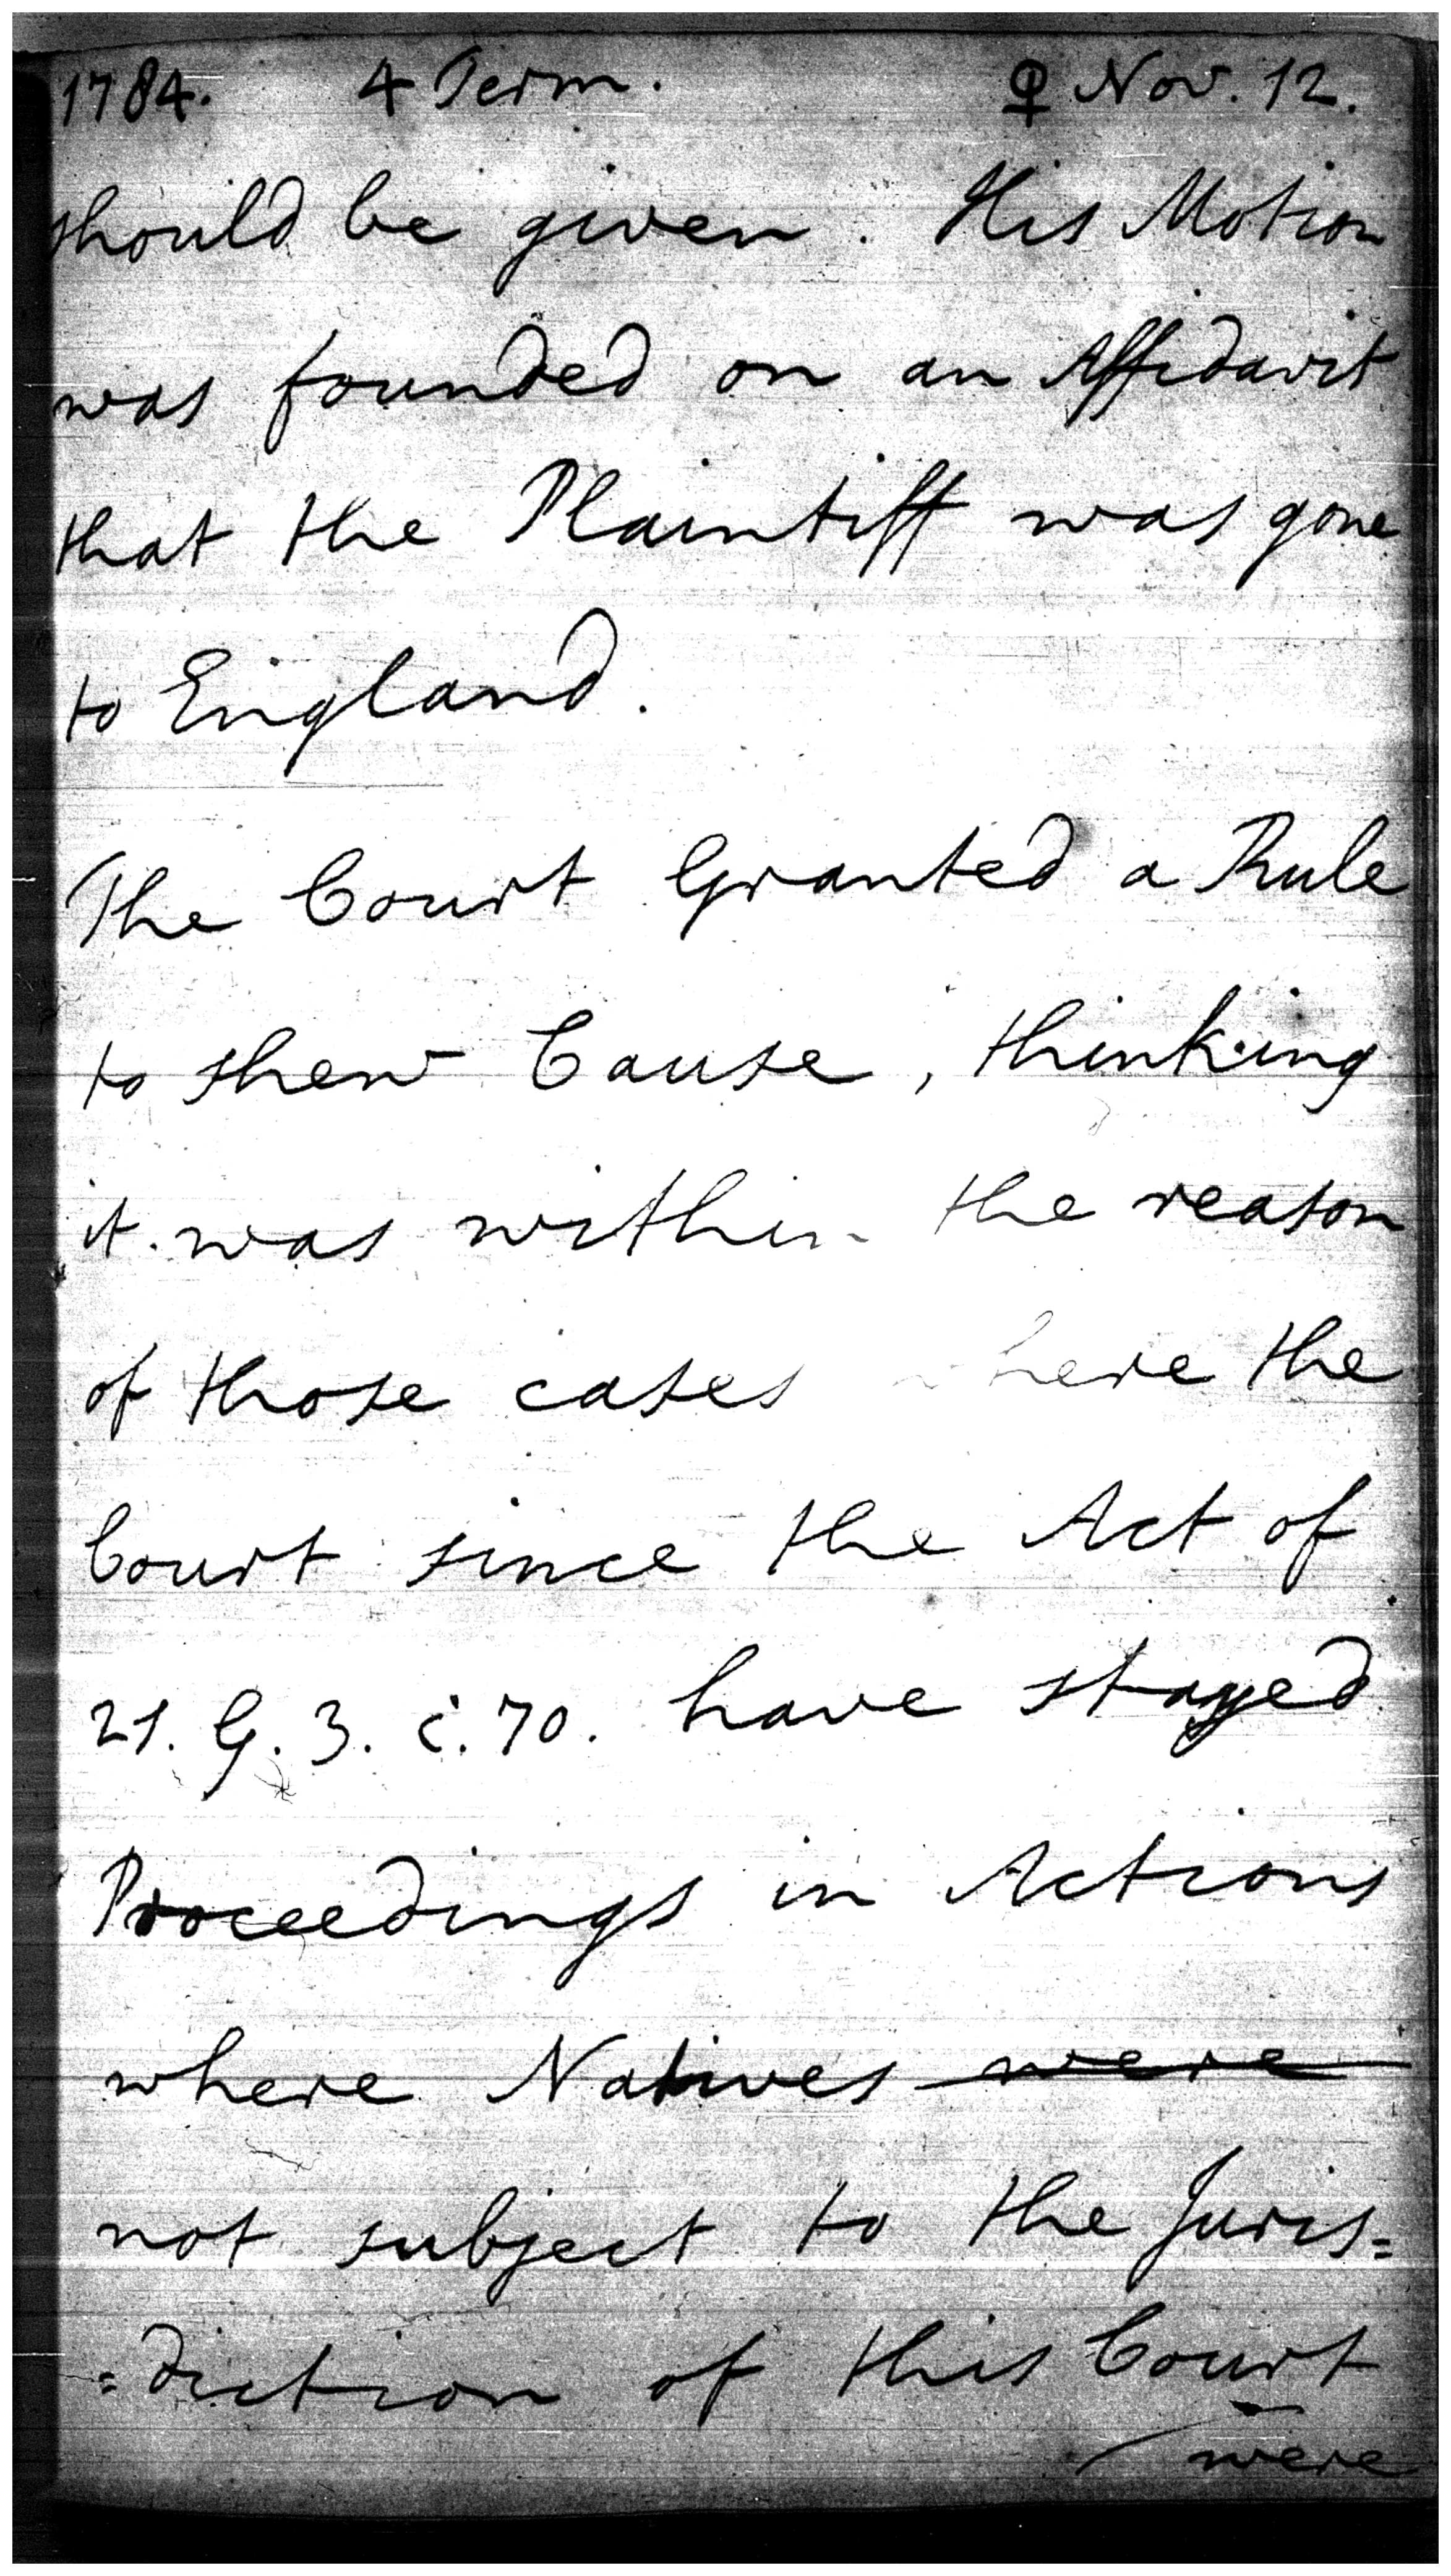 1784. 4 Term. ♀ Nov. 12.
should be given. His Motion
was founded on an Affidavit
that the Plaintiff was gone
to England.
The Court Granted a Rule
to shew Cause, thinking
it was within the reason
of those cases where the
Court since the Act of
21. G. 3. c. 70. have stayed
Proceedings in Actions
where Natives were
not subject to the Juris=
=diction of this Court
were